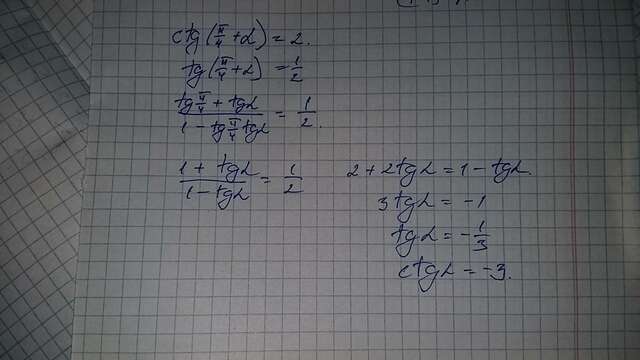 ctg(π/4 + α) = 2.
tg(π/4 + α) = 1/2
(tg π/4 + tgα)/(1 - tg π/4 tgα) = 1/2.
(1 + tgα)/(1 - tgα) = 1/2
2 + 2tgα = 1 - tgα.
3tgα = -1
tgα = -1/3
ctgα = -3.